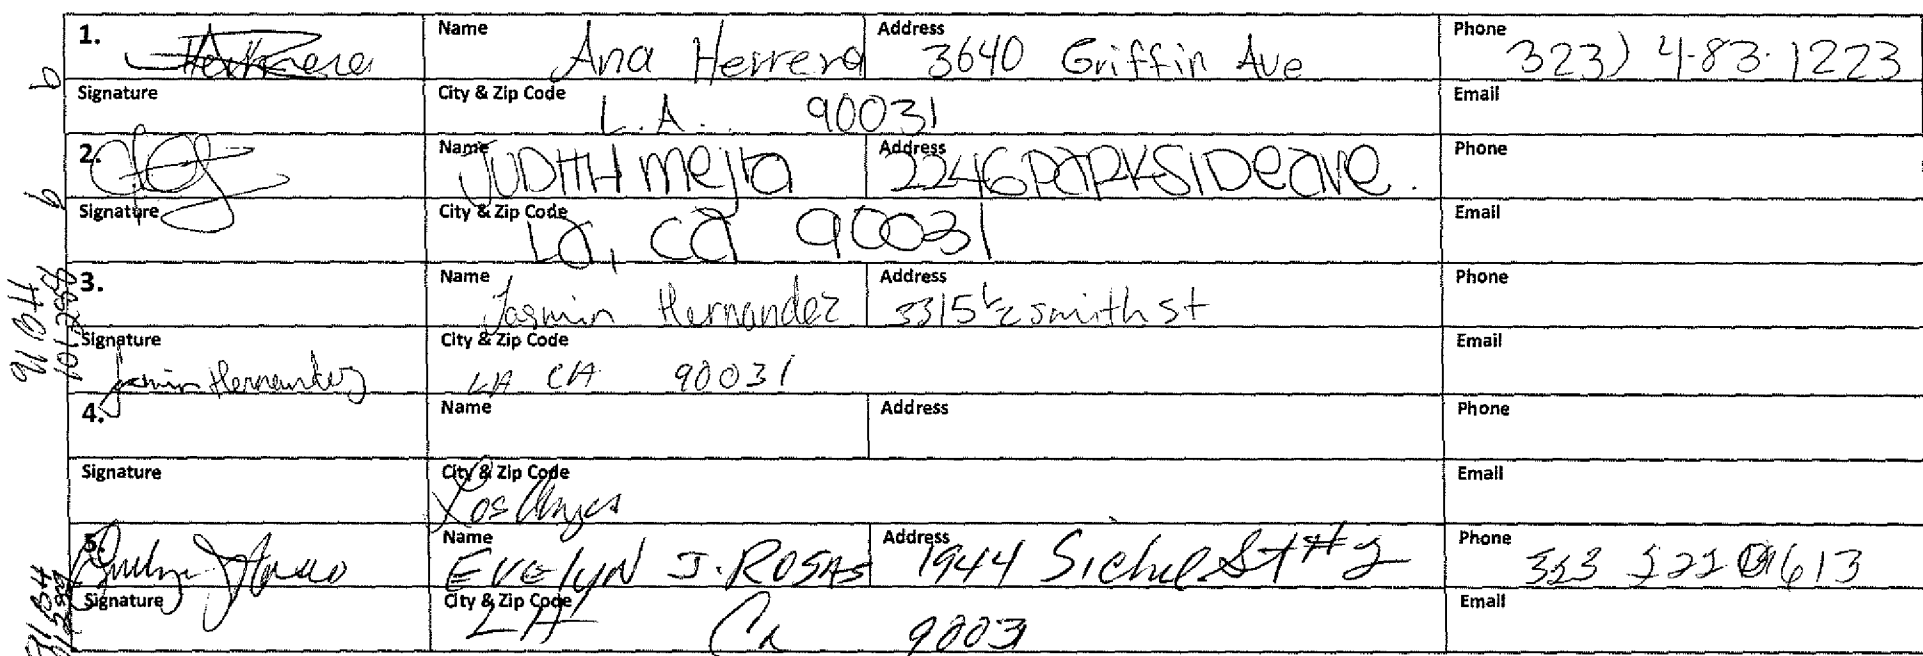 1. Name Ana Herrera Address 3640 Griffin Ave Phone 323) 4-83-1223
Signature City & Zip Code L.A. 90031 Email
2. Name JUDITH mejia Address 2246 PARKSIDE AVE. Phone
Signature City & Zip Code La, ca 90031 Email
3. Name Jasmin Hernandez Address 3315 1/2 smith st Phone
Signature Jasmin Hernandez City & Zip Code LA CA 90031 Email
4. Name Address Phone
Signature City & Zip Code Los Angeles Email
5. Name EVElyN J. ROSAS Address 1944 Sichel St # 2 Phone
Signature City & Zip Code LA Ca 90031 Email